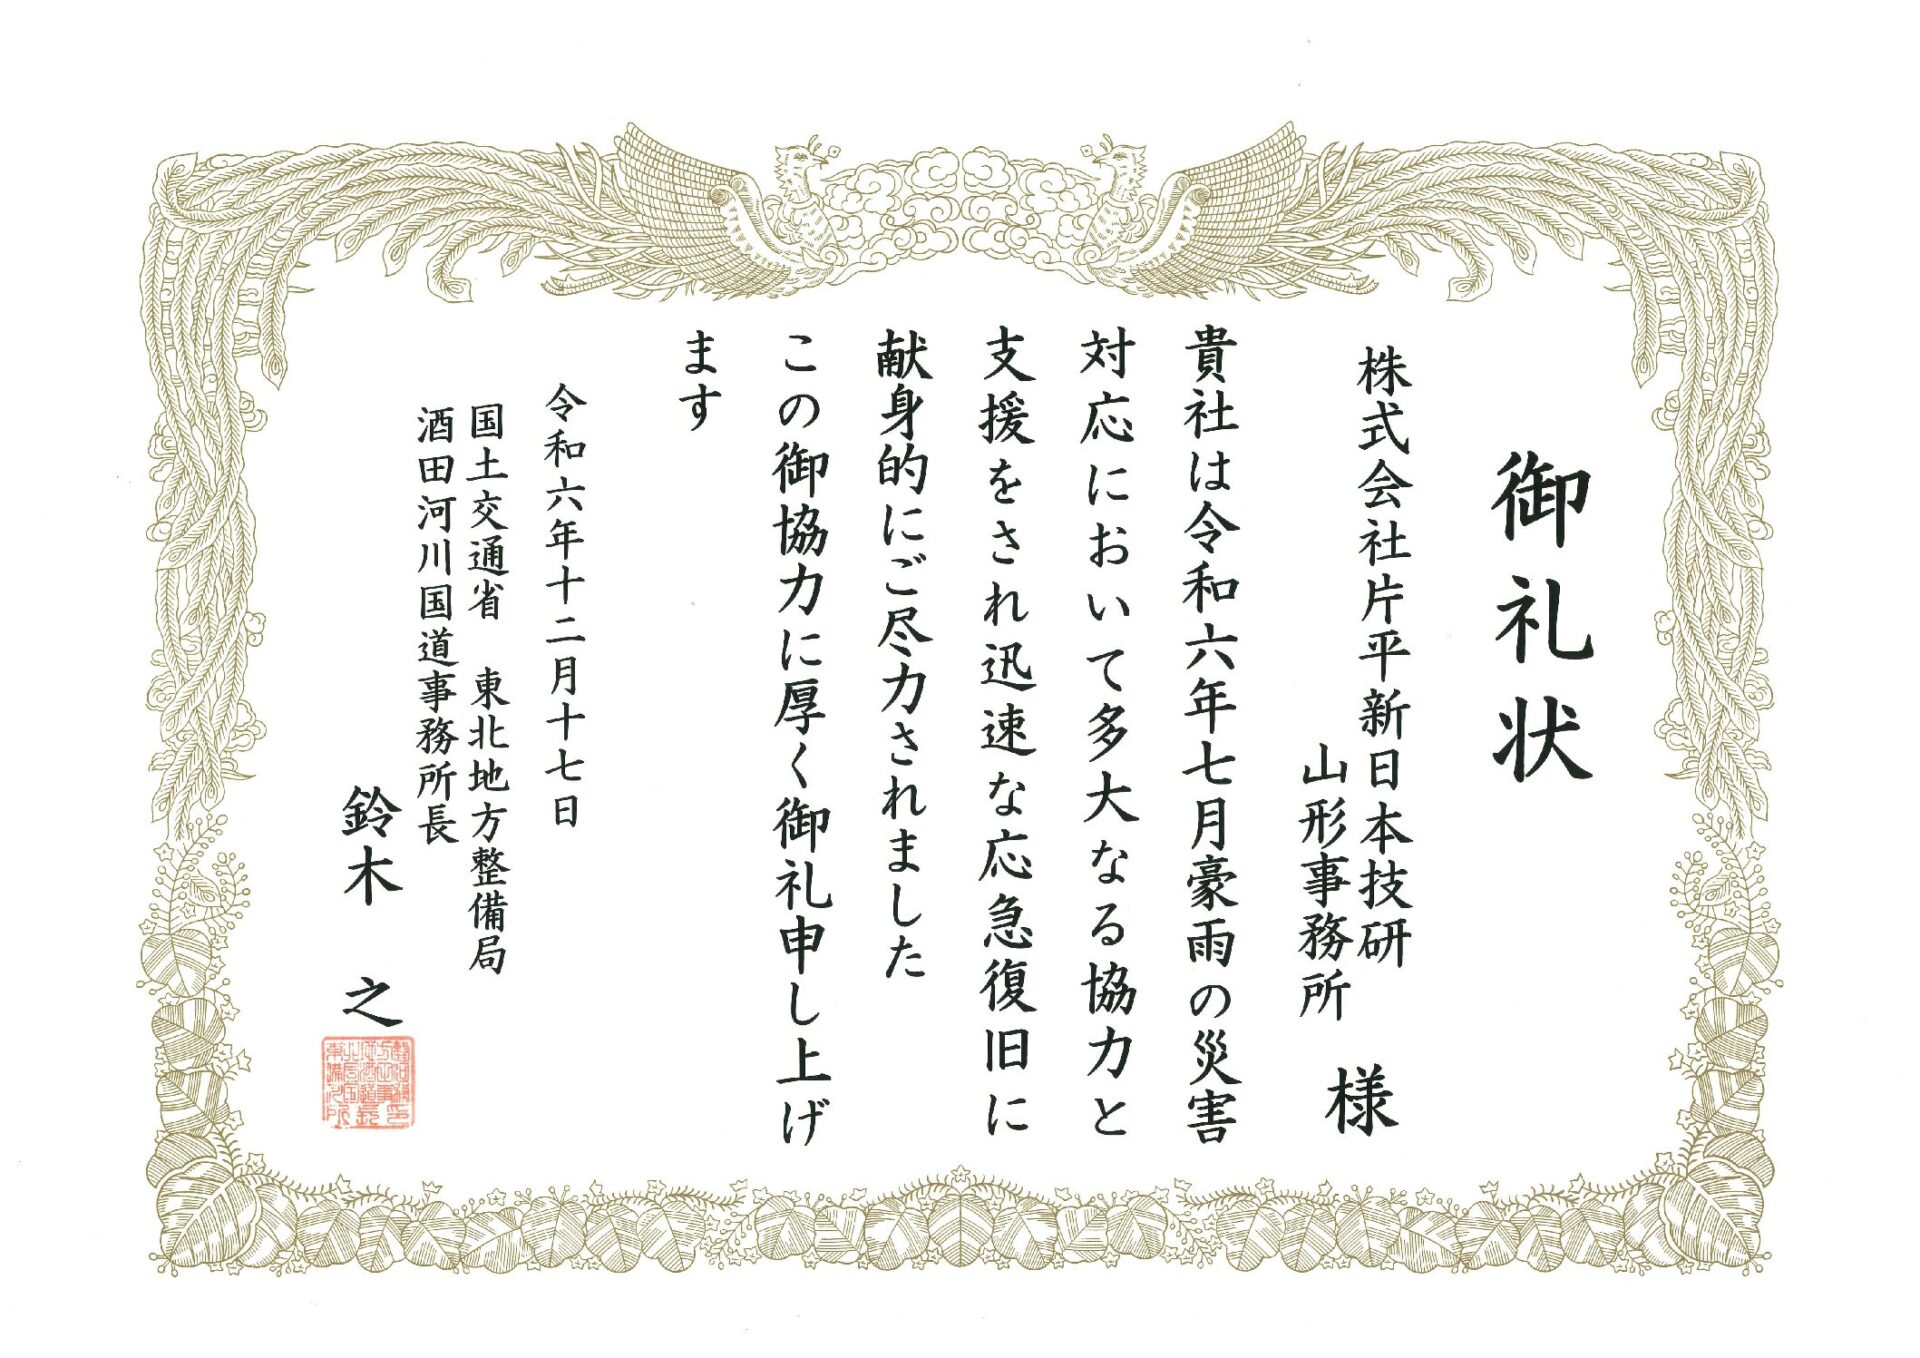 御礼状
株式会社片平新日本技研
山形事務所
様
貴社は令和六年七月豪雨の災害
対応において多大なる協力と
支援をされ迅速な応急復旧に
献身的にご尽力されました
この御協力に厚く御礼申し上げ
ます
令和六年十二月十七日
国土交通省 東北地方整備局
酒田河川国道事務所長
鈴木 之